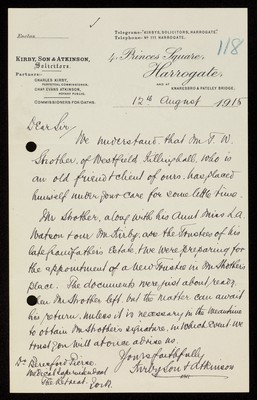 Enclos.
Telegrams: "KIRBYS, SOLICITORS, HARROGATE."
Telephone: Nº 111 HARROGATE.
118
KIRBY, SON & ATKINSON,
Solicitors.
Partners:
CHARLES KIRBY,
PERPETUAL COMMISSIONER.
CHAS EVANS ATKINSON,
NOTARY PUBLIC.
COMMISSIONERS FOR OATHS.
4, Princes Square,
Harrogate,
AND AT
KNARESBORO & PATELEY BRIDGE.
12th August 1915
Dear Sir,
We understand that Mr T. W.
Strother, of Westfield Killinghall, who is
an old friend & client of ours, has placed
himself under your care for some little time.
Mr Strother, along with his Aunt Miss L.A.
Watson & our Mr Kirby, are the Trustees of his
late Grandfather's Estate, & we were preparing for
the appointment of a new Trustee in Mr Strother's
place. The documents were just about ready
when Mr Strother left, but the matter can await
his return, unless it is necessary in the meantime
to obtain Mr Strother's signature, in which event we
trust you will at once advise us.
Yours faithfully
Kirby Son & Atkinson
Dr Bereford Pierce
Medical Superintendent
The Retreat
York.